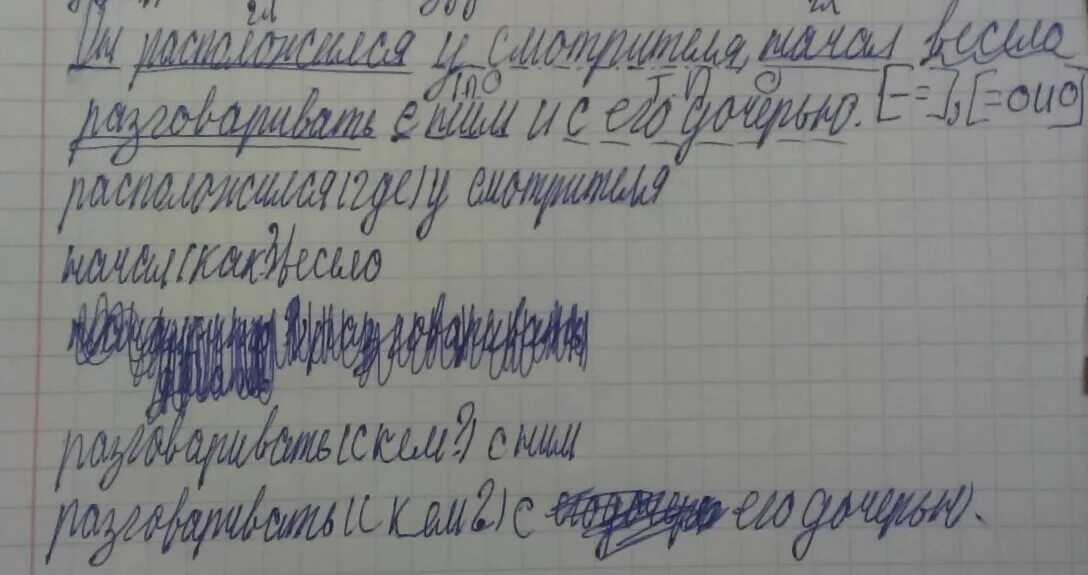 гл гл
Он расположился у смотрителя, начал весело
разговаривать с ним и с его дочерью. [-=], [=ОИО]
расположился (где) у смотрителя
начал (как?) весело
разговаривать (с кем?) с ним
разговаривать (с кем?) с его дочерью.